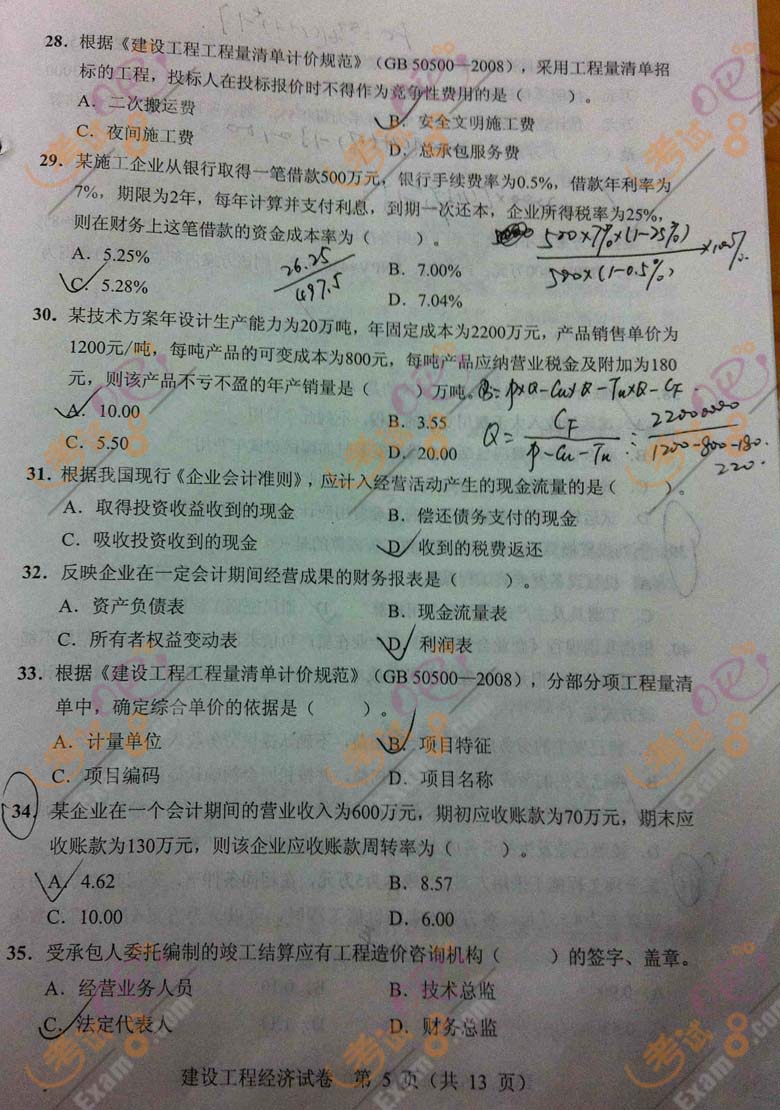 28. 根据《建设工程工程量清单计价规范》（GB 50500—2008），采用工程量清单招
标的工程，投标人在投标报价时不得作为竞争性费用的是（　　）。
A．二次搬运费　　B．安全文明施工费
C．夜间施工费　　D．总承包服务费
29. 某施工企业从银行取得一笔借款500万元，银行手续费率为0.5%，借款年利率为
7%，期限为2年，每年计算并支付利息，到期一次还本，企业所得税率为25%，
则在财务上这笔借款的资金成本率为（　　）。
500×7%×(1-25%)
500×(1-0.5%)
A．5.25%　　B．7.00%
26.25
497.5
C．5.28%　　D．7.04%
30. 某技术方案年设计生产能力为20万吨，年固定成本为2200万元，产品销售单价为
1200元/吨，每吨产品的可变成本为800元，每吨产品应纳营业税金及附加为180
元，则该产品不亏不盈的年产销量是（　　）万吨。
B=p×Q-Cu×Q-Tu×Q-CF
A．10.00　　B．3.55
C．5.50　　D．20.00
Q= CF
p-Cu-Tu
22000000
1200-800-180
220
31. 根据我国现行《企业会计准则》，应计入经营活动产生的现金流量的是（　　）。
A．取得投资收益收到的现金　　B．偿还债务支付的现金
C．吸收投资收到的现金　　D．收到的税费返还
32. 反映企业在一定会计期间经营成果的财务报表是（　　）。
A．资产负债表　　B．现金流量表
C．所有者权益变动表　　D．利润表
33. 根据《建设工程工程量清单计价规范》（GB 50500—2008），分部分项工程量清
单中，确定综合单价的依据是（　　）。
A．计量单位　　B．项目特征
C．项目编码　　D．项目名称
34. 某企业在一个会计期间的营业收入为600万元，期初应收账款为70万元，期末应
收账款为130万元，则该企业应收账款周转率为（　　）。
A．4.62　　B．8.57
C．10.00　　D．6.00
35. 受承包人委托编制的竣工结算应有工程造价咨询机构（　　）的签字、盖章。
A．经营业务人员　　B．技术总监
C．法定代表人　　D．财务总监
建设工程经济试卷　第 5 页（共 13 页）
考试吧
Exam8.com